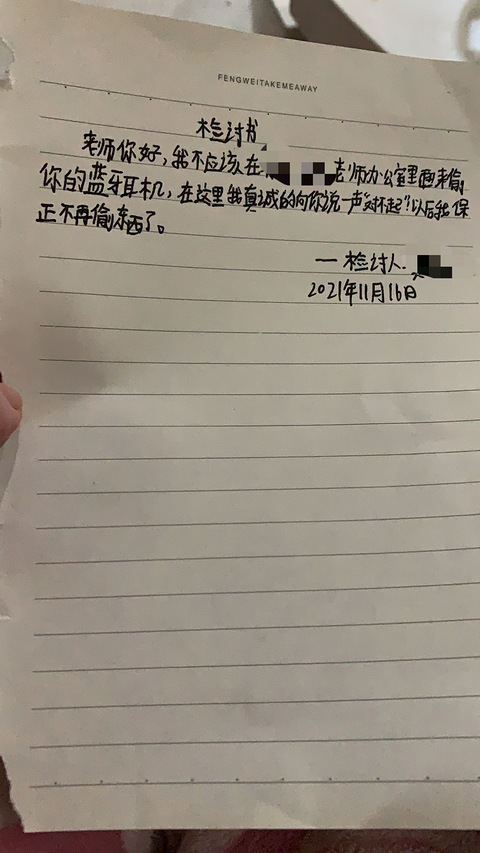 FENGWEITAKEMEAWAY
检讨书
老师你好，我不应该在 老师办公室里面来偷
你的蓝牙耳机，在这里我真诚的向你说一声"对不起"!以后我保
正不再偷东西了。
一检讨人.
2021年11月16日